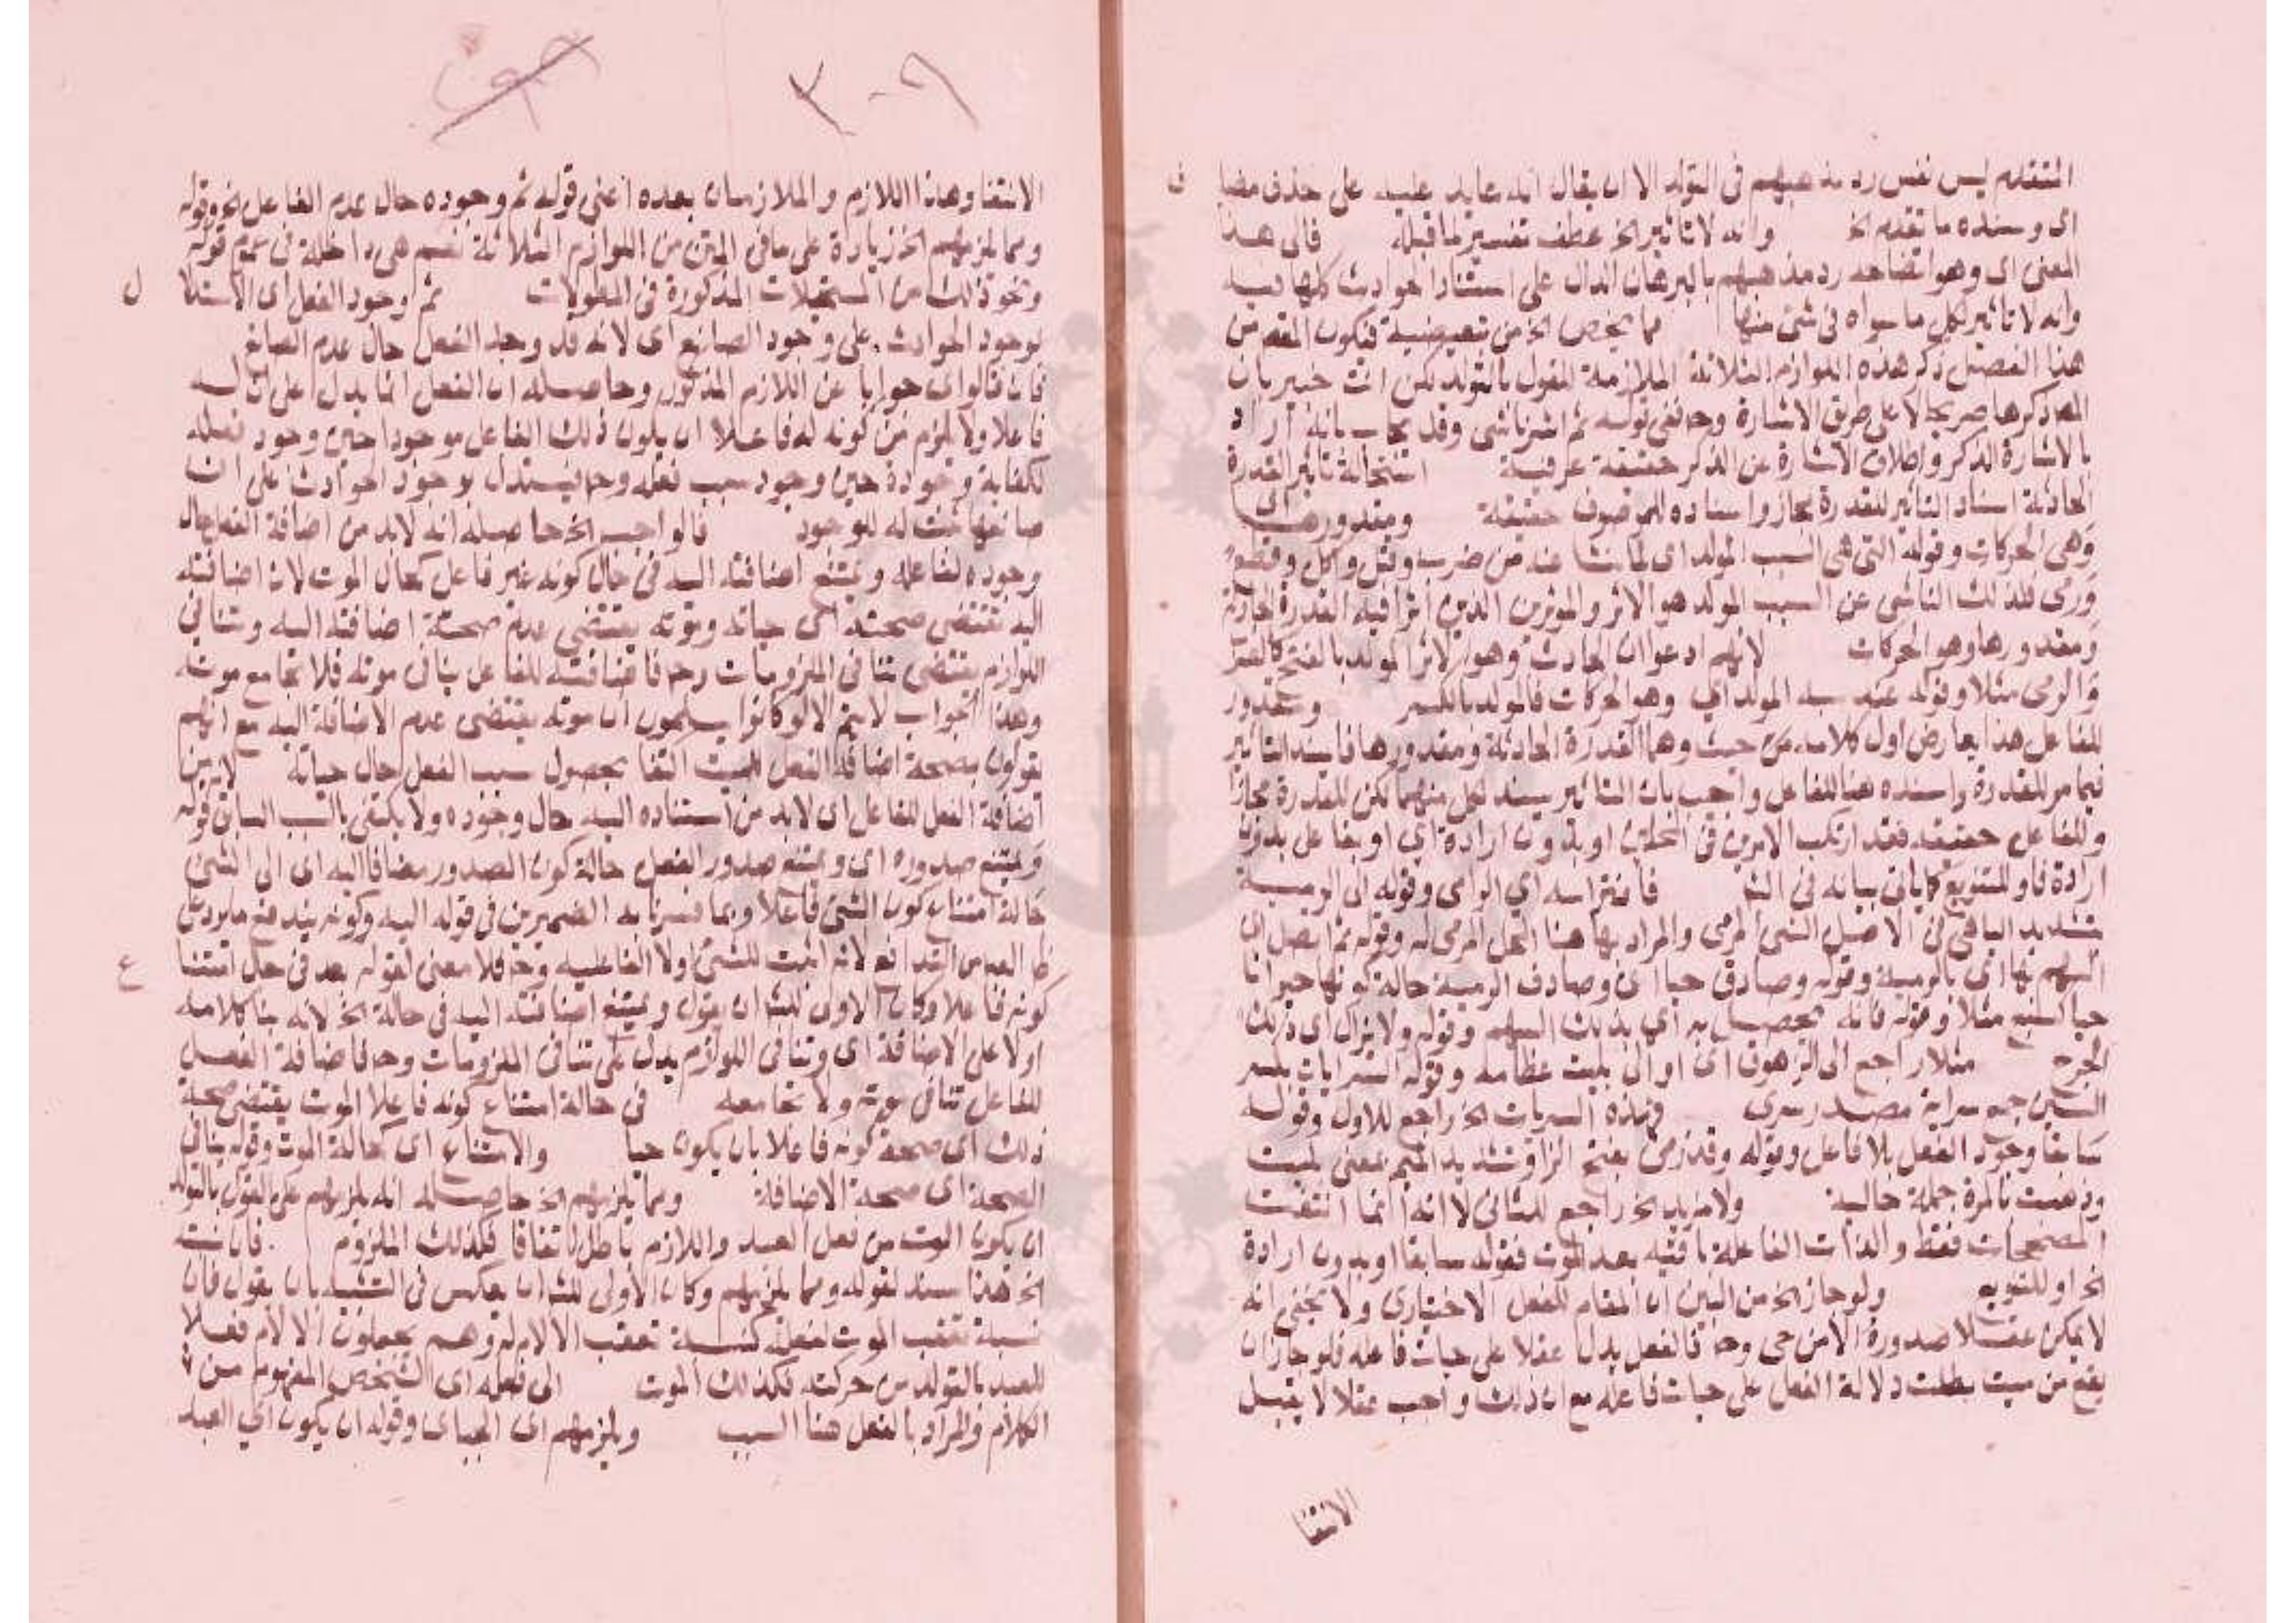 المتقدم ليس نفس رد مذهبهم فى التولد الا ان يقال انه عايد عليه على حذف مضا ف
اى وسنده ما تقدم الخ وانه لا تاثير الخ عطف تفسير لما قبله فالى هذا
المعنى اى وهو ايضاحه رد مذهبهم بالبرهان الدال على استناد الحوادث كلها اليه
وانه لا تاثير لكل ما سواه فى شئ منها مما يخص الخ من تبعيضية فيكون المقصد من
هذا الفصل ذكر هذه اللوازم الثلاثة الملازمة للقول بالتولد لكن انت خبير بان
المص ذكرها صريحا لا على طريق الاشارة وح ففى قوله ثم اشرنا شئ وقد يجاب بانه اراد
بالاشارة الذكر واطلاق الاشارة عن الذكر حقيقة عرفية استحالة تاثير القدرة
الحادثة اسناد التاثير للقدرة مجاز واسناده للموصوف حقيقة ومقدورها اى
وهى الحركات وقوله التى هى السبب المولد اى لما نشا عنه من ضرب وقتل واكل وقطع
ورمى فلذلك الناشى عن السبب المولد هو الاثر والموثرين الذين اثرا فيه القدرة الحادثة
ومقدورها وهو الحركات لانهم ادعوا ان الحادث وهو الاثر المولد بالفتح كالضرب
والرمى مثلا وقوله عنه سبه المولد اى وهو الحركات فالمولد بالكسر ومقدور
للفاعل هذا يعارض اول كلامه من حيث وهما القدرة الحادثة ومقدورها فاسند التاثير
فيما مر للقدرة واسنده هنا للفاعل واجيب بان التاثير يسند لكل منهما لكن للقدرة مجازا
وللفاعل حقيقة فقد ارتكب الامرين فى المحلين او بدون ارادة اى او بفاعل بدون
ارادة فاو للتنويع كما ياتى بيانه فى الش فاخترامه اى الرامى وقوله الى الرمية
بتشديد الياء هى فى الاصل الشئ المرمى والمراد بها هنا المحل المرمى له وقوله ثم اتصل اى
السهم بها اى بالرمية وقوله وصادفى حيا اى وصادف الرمية حالة كونها حيوانا
حيا كسبع مثلا وقوله فانه تحصل به اى بذلك السهم وقوله ولا يزال اى ذلك
الجرح مثلا راجع الى الزهوق اى او الى بليت عظامه وقوله السرايات بكسر
السين جمع سراية مصدر سرى فهذه السريات الخ راجع للاول وقوله
سابقا وجود الفعل بلا فاعل وقوله وقد رمى بفتح الراو تشديد الميم بمعنى بليت
وذهبت بالمرة جملة حالية ولا مزيد الخ راجع للثانى لا انه انما انتفت
المصححات فقط والذات الفاعلة باقية بعد الموت فقوله سابقا او بدون ارادة
الخ او للتنويع ولو جاز الخ من البين ان المقام للفعل الاختيارى ولا يخفى انه
لا يمكن عقلا صدوره الا من حى وح فالفعل يدل عقلا على حيات فاعله فلو جاز ان
يقع من ميت بطلت دلالة الفعل على حيات فاعله مع ان ذلك واجب عقلا لا يقبل
الانتفا
٣٠٩
الانتفا وهذا اللازم والملازمان بعده اعنى قوله ثم وجوده حال عدم الفاعل الخ وقوله
ومما يلزمهم الخ زيادة على ما فى المتن من اللوازم الثلاثة نعم هى داخلة فى عموم قوله
ونحو ذلك من المستحيلات المذكورة فى المطولات ثم وجود الفعل اى الاستدلا ل
بوجود الحوادث على وجود الصانع اى لانه قد وجد الفعل حال عدم الصانع
فان قالوا اى جوابا عن اللازم المذكور وحاصله ان الفعل انما يدل على ان له
فاعلا ولا يلزم من كونه له فاعلا ان يكون ذلك الفاعل موجودا حين وجود فعله
لكفاية وجوده حين وجود سبب فعله وح فيستدل بوجود الحوادث على ان
صانعها ثبت له الوجود فالواجب الخ حاصله انه لابد من اضافة الفعل حال
وجوده لفاعله ويمتنع اضافته اليه فى حال كونه غير فاعل كحال الموت لان اضافته
اليه تقتضى صحته اى حياته وموته يقتضى عدم صحة اضافته اليه وتنافى
اللوازم يقتضى تنافى الملزومات وح فاضافته للفاعل ينافى موته فلا تجامع موته
وهذا الجواب لا يتم الا لو كانوا يسلمون ان موته يقتضى عدم الاضافة اليه مع انهم
يقولون بصحة اضافة الفعل للميت اكتفا بحصول سبب الفعل حال حياته لابد من
اضافة الفعل للفاعل اى لابد من استناده اليه حال وجوده ولا يكتفى بالسبب السابق قوله
ويمتنع صدوره اى ويمتنع صدور الفعل حالة كون الصدور مضافا اليه اى الى الشئ
حالة امتناع كون الشئ فاعلا وبما فسرنا به الضميرين فى قوله اليه وكونه يندفع ما يرد على
ظاهره من التدافع لانه اثبت للشئ اولا الفاعلية وح فلا معنى لقوله بعد فى حال امتنا ع
كونه فاعلا وكان الاولى للش ان يقول ويمتنع اضافته اليه فى حالة الخ لانه بنا كلامه
اولا على الاضافة اى وتنافى اللوازم يدل على تنافى الملزومات وح فاضافة الفعل
للفاعل تنافى موته ولا تجامعه فى حالة امتناع كونه فاعلا الموت يقتضى صحة
ذلك اى صحة كونه فاعلا بان يكون حيا والامتناع اى كحالة الموت وقوله ينافى
الصحة اى صحة الاضافة ومما يلزمهم الخ حاصله انه يلزمهم على القول بالتولد
ان يكون الموت من فعل العبد واللازم باطل اتفاقا فكذلك الملزوم فان نسبته
الخ هذا سند لقوله ومما يلزمهم وكان الاولى للش ان يعكس فى التشبيه بان يقول فان
نسبة تعقب الموت لفعله كنسبة تعقب الالام له وهم يجعلون الالام فعلا
للعبد بالتولد من حركته فكذلك الموت الى فعله اى الشخص المفهوم من
الكلام والمراد بالفعل هنا السبب ويلزمهم اى الجبائى وقوله ان يكون اى العبد